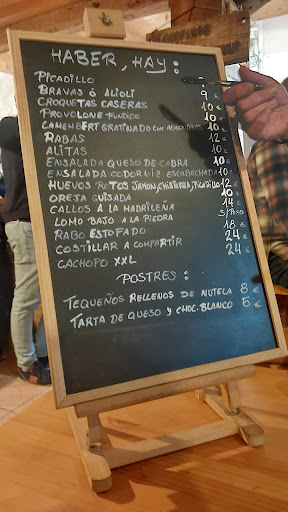 HABER, HAY:
PICADILLO
BRAVAS ó ALIOLI 9 €
CROQUETAS CASERAS 10 €
PROVOLONE FUNDIDO 10 €
CAMEMBERT GRATINADO CON 10 €
RABAS 12 €
ALITAS 10 €
ENSALADA QUESO DE CABRA 10 €
ENSALADA CODORNIZ ESCABECHADA 10 €
HUEVOS ROTOS JAMON, CHISTORRA, PICADILLO 12 €
OREJA GUISADA 10 €
CALLOS A LA MADRILEÑA 14 €
LOMO BAJO A LA PIEDRA S/PESO
RABO ESTOFADO 18 €
COSTILLAR A COMPARTIR 24 €
CACHOPO XXL 24 €
POSTRES:
TEQUEÑOS RELLENOS DE NUTELA 8 €
TARTA DE QUESO Y CHOC. BLANCO 5 €